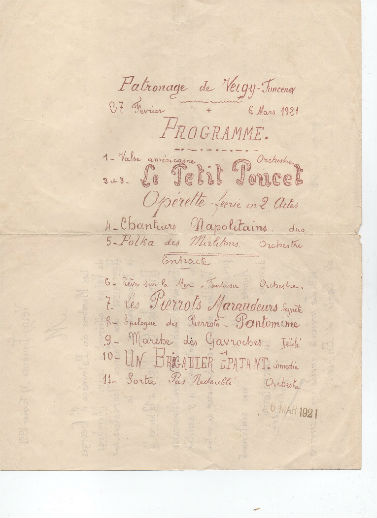 Patronage de Veigy-Foncenex
27 Février + 6 Mars 1921
PROGRAMME.
1 - Valse américaine Orchestre
2 et 3 - Le Petit Poucet
Opérette-féerie en 2 Actes
4 - Chanteurs Napolitains duo
5 - Polka des Mirlitons Orchestre
Entracte
6 - sur la Mer Orchestre.
7 - Les Pierrots Maraudeurs
8 - Epilogue des Pierrots - Pantomime
9 - Marche des Gavroches
10 - UN BRIGADIER EPATANT. comédie
11 - Sortie Pas Redoublé Orchestre
6 MAR 1921